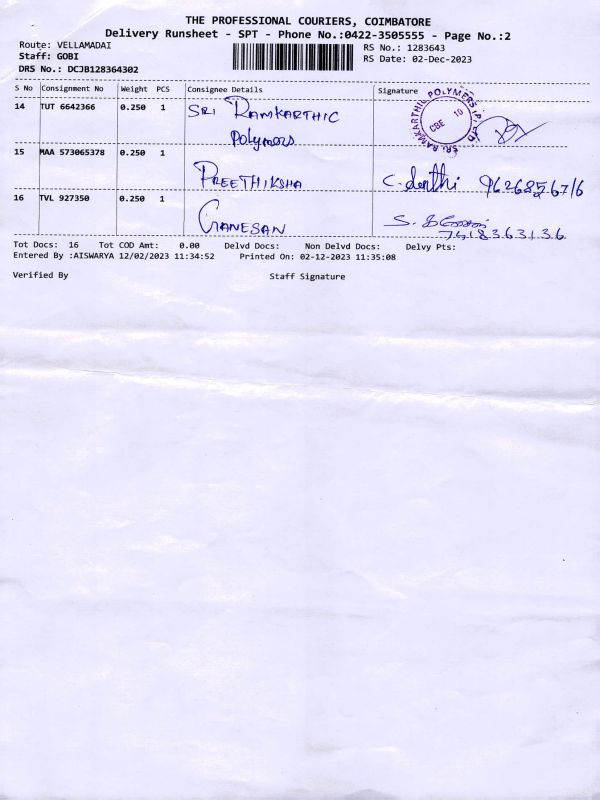 THE PROFESSIONAL COURIERS, COIMBATORE
Delivery Runsheet - SPT - Phone No.:0422-3505555 - Page No.:2
Route: VELLAMADAI
RS No.: 1283643
Staff: GOBI
RS Date: 02-Dec-2023
DRS No.: DCJB128364302
S No Consignment No Weight PCS Consignee Details Signature
14 TUT 6642366 0.250 1 SRI RAMKARTHIC
Polymers
SRI RAMKARTHIK POLYMERS (P) LTD
CBE 10
15 MAA 573065378 0.250 1 PREETHIKSHA C. 9626856716
16 TVL 927350 0.250 1 GANESAN S.
7418363136
Tot Docs: 16 Tot COD Amt: 0.00 Delvd Docs: Non Delvd Docs: Delvy Pts:
Entered By :AISWARYA 12/02/2023 11:34:52 Printed On: 02-12-2023 11:35:08
Verified By Staff Signature